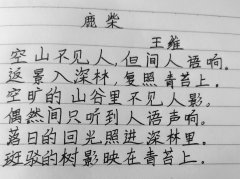 鹿柴
王雍
空山不见人,但间人语响。
返景入深林,复照青苔上。
空旷的山谷里不见人影,
偶然间只听到人语声响。
落日的回光照进深林里。
斑驳的树影映在青苔上。